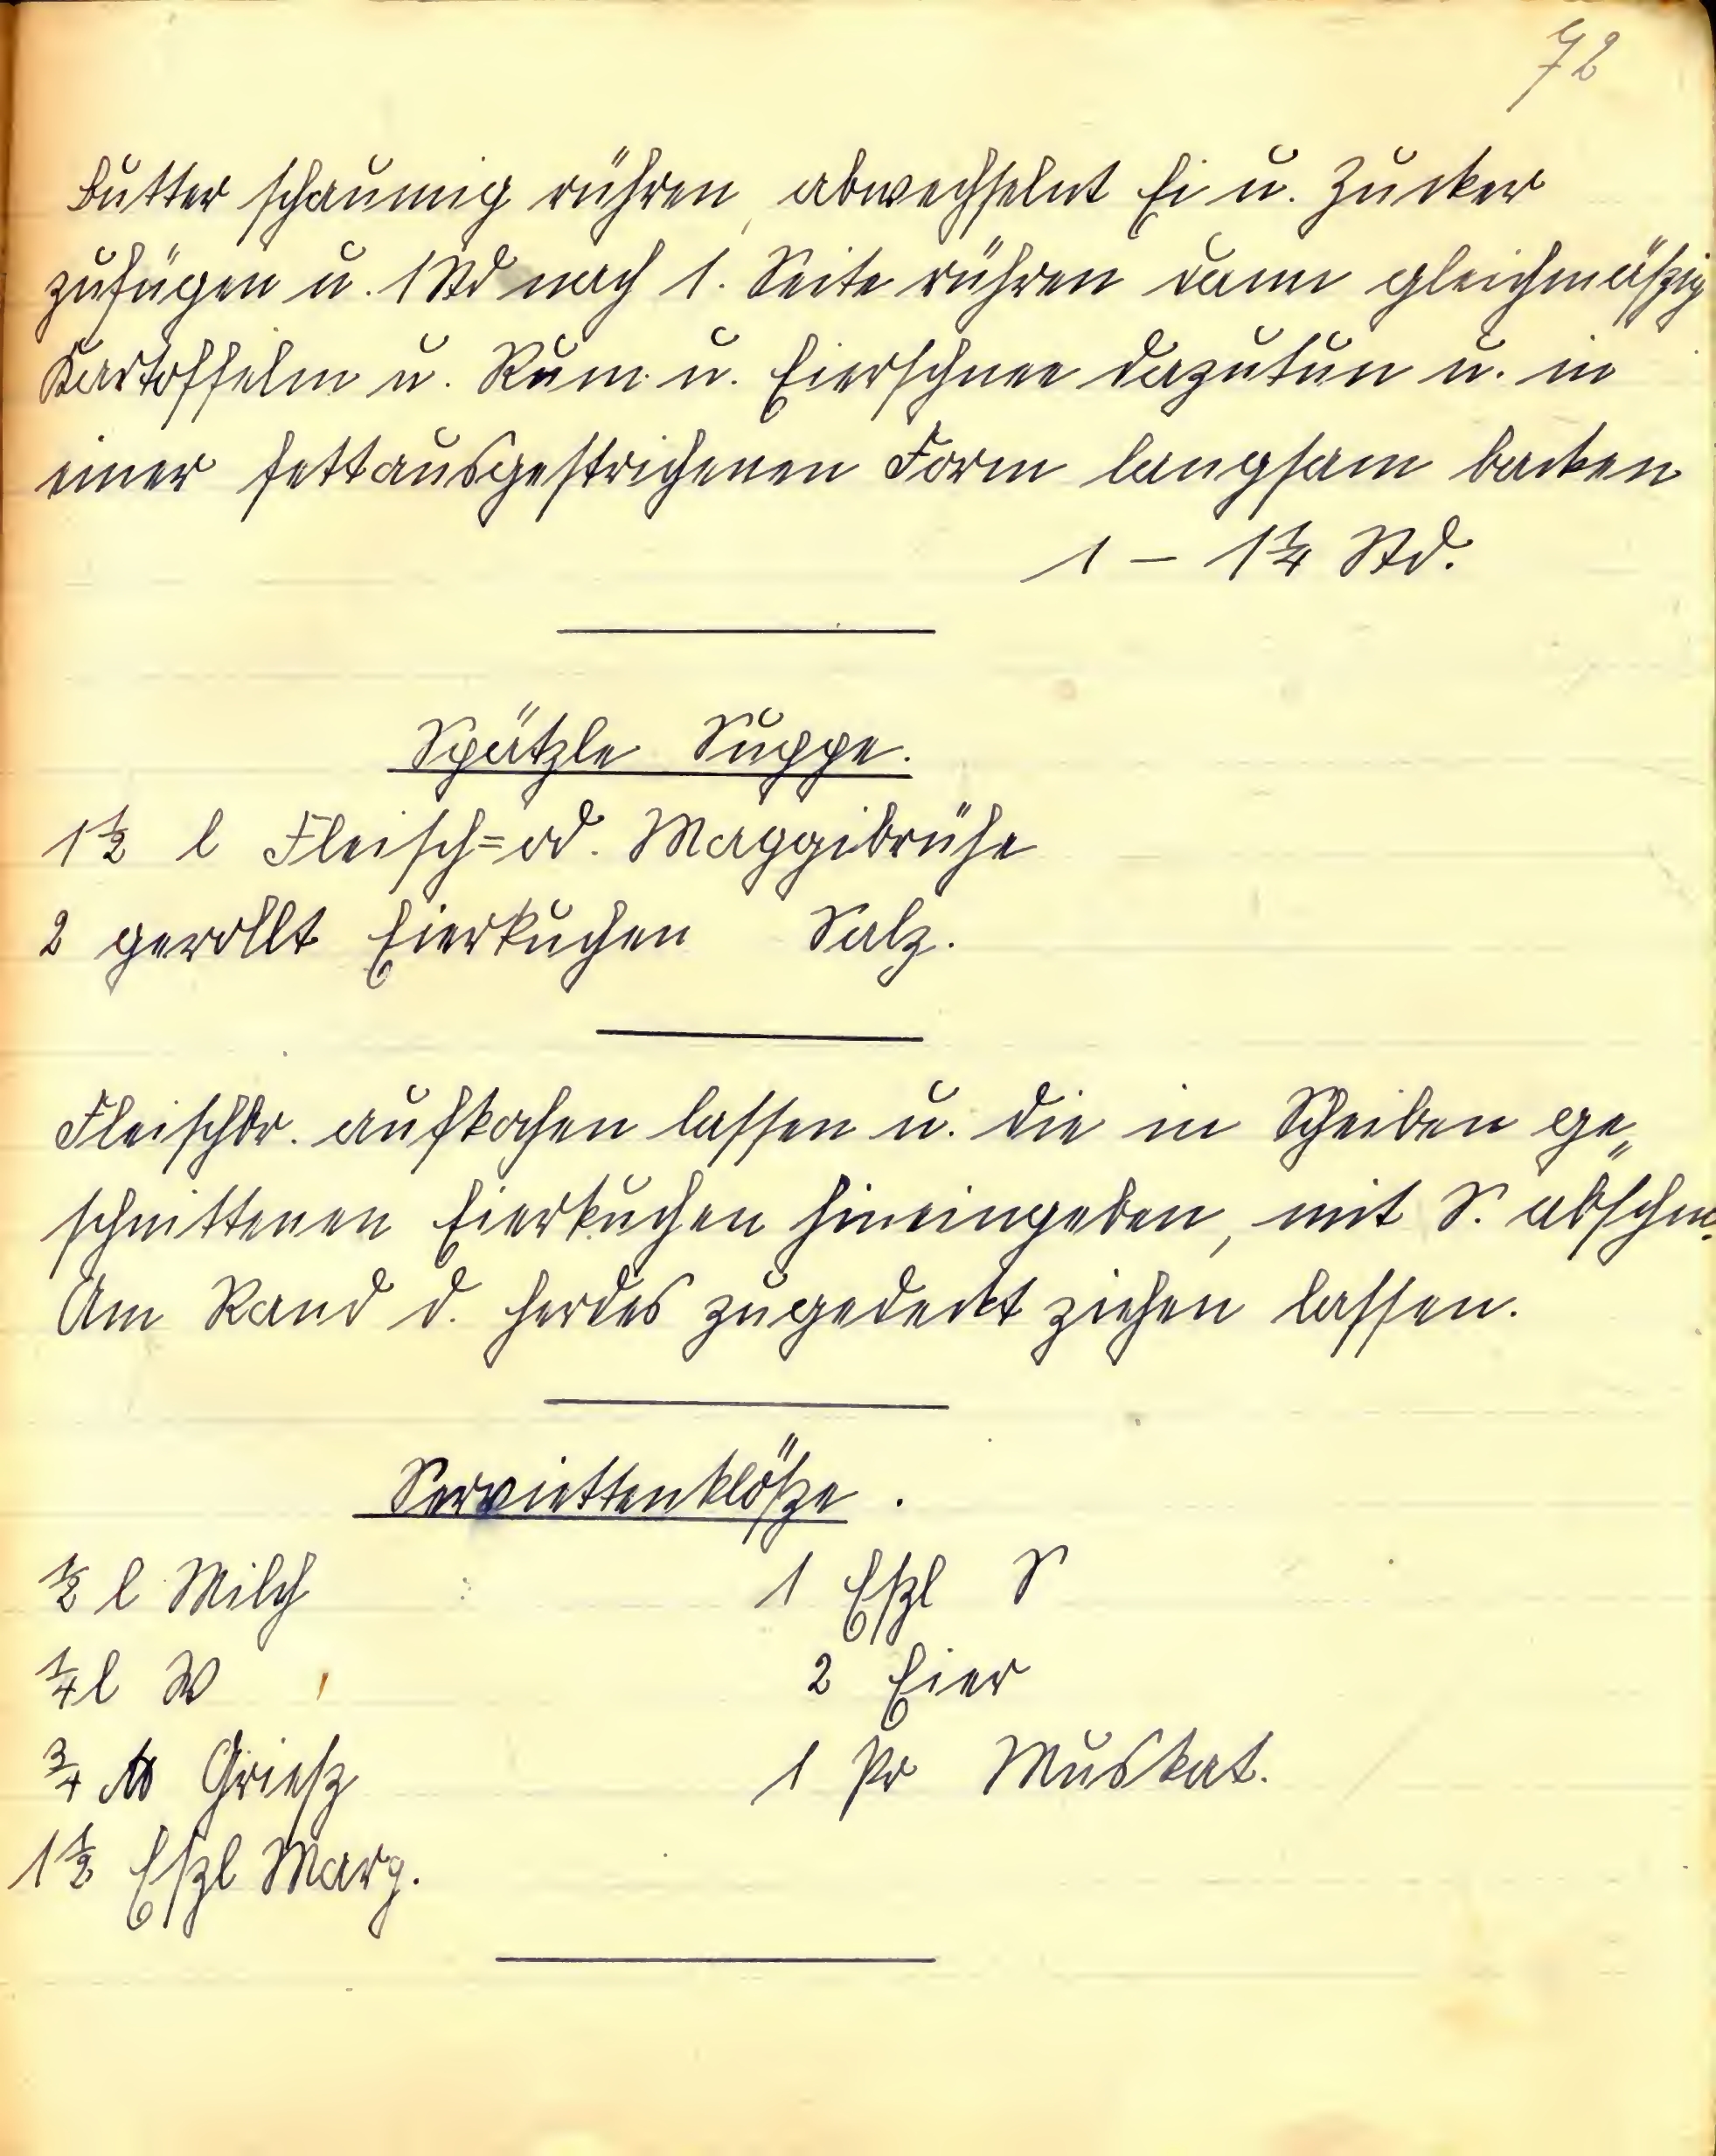 72
Butter schaumig rühren, abwechselnt Ei u. Zucker
zufügen u. 1 Std nach 1. Seite rühren dann gleichmäßig
Kartoffeln u. Rum u. Eierschnee dazutun u. in
einer fettausgestrichenen Form langsam backen
1 – 1¼ Std.
Spätzle Suppe.
1½ l Fleisch= od. Maggibrühe
2 gerollt Eierkuchen Salz.
Fleischbr. aufkochen lassen u. die in Scheiben ge„
schnittenen Eierkuchen hineingeben, mit S. abschm.
Am Rand d. Herdes zugedeckt ziehen lassen.
Serviettenklöße.
½ l Milch 1 Eßl S
¼ l W 2 Eier
¾ ℔ Grieß 1 Pr Muskat.
1½ Eßl Marg.